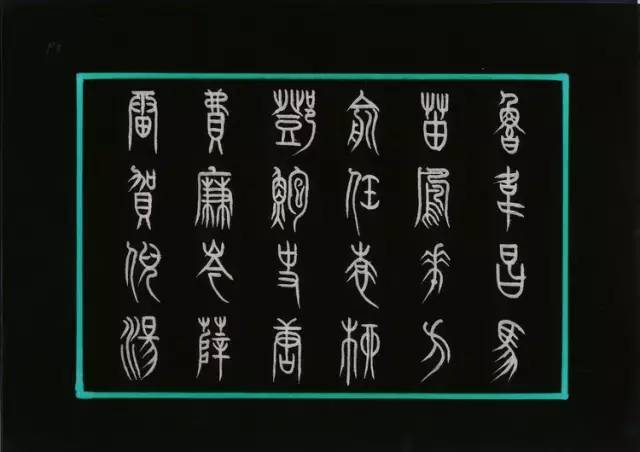 魯韋昌馬
苗鳳花方
俞任袁柳
酆鮑史唐
費廉岑薛
雷賀倪湯